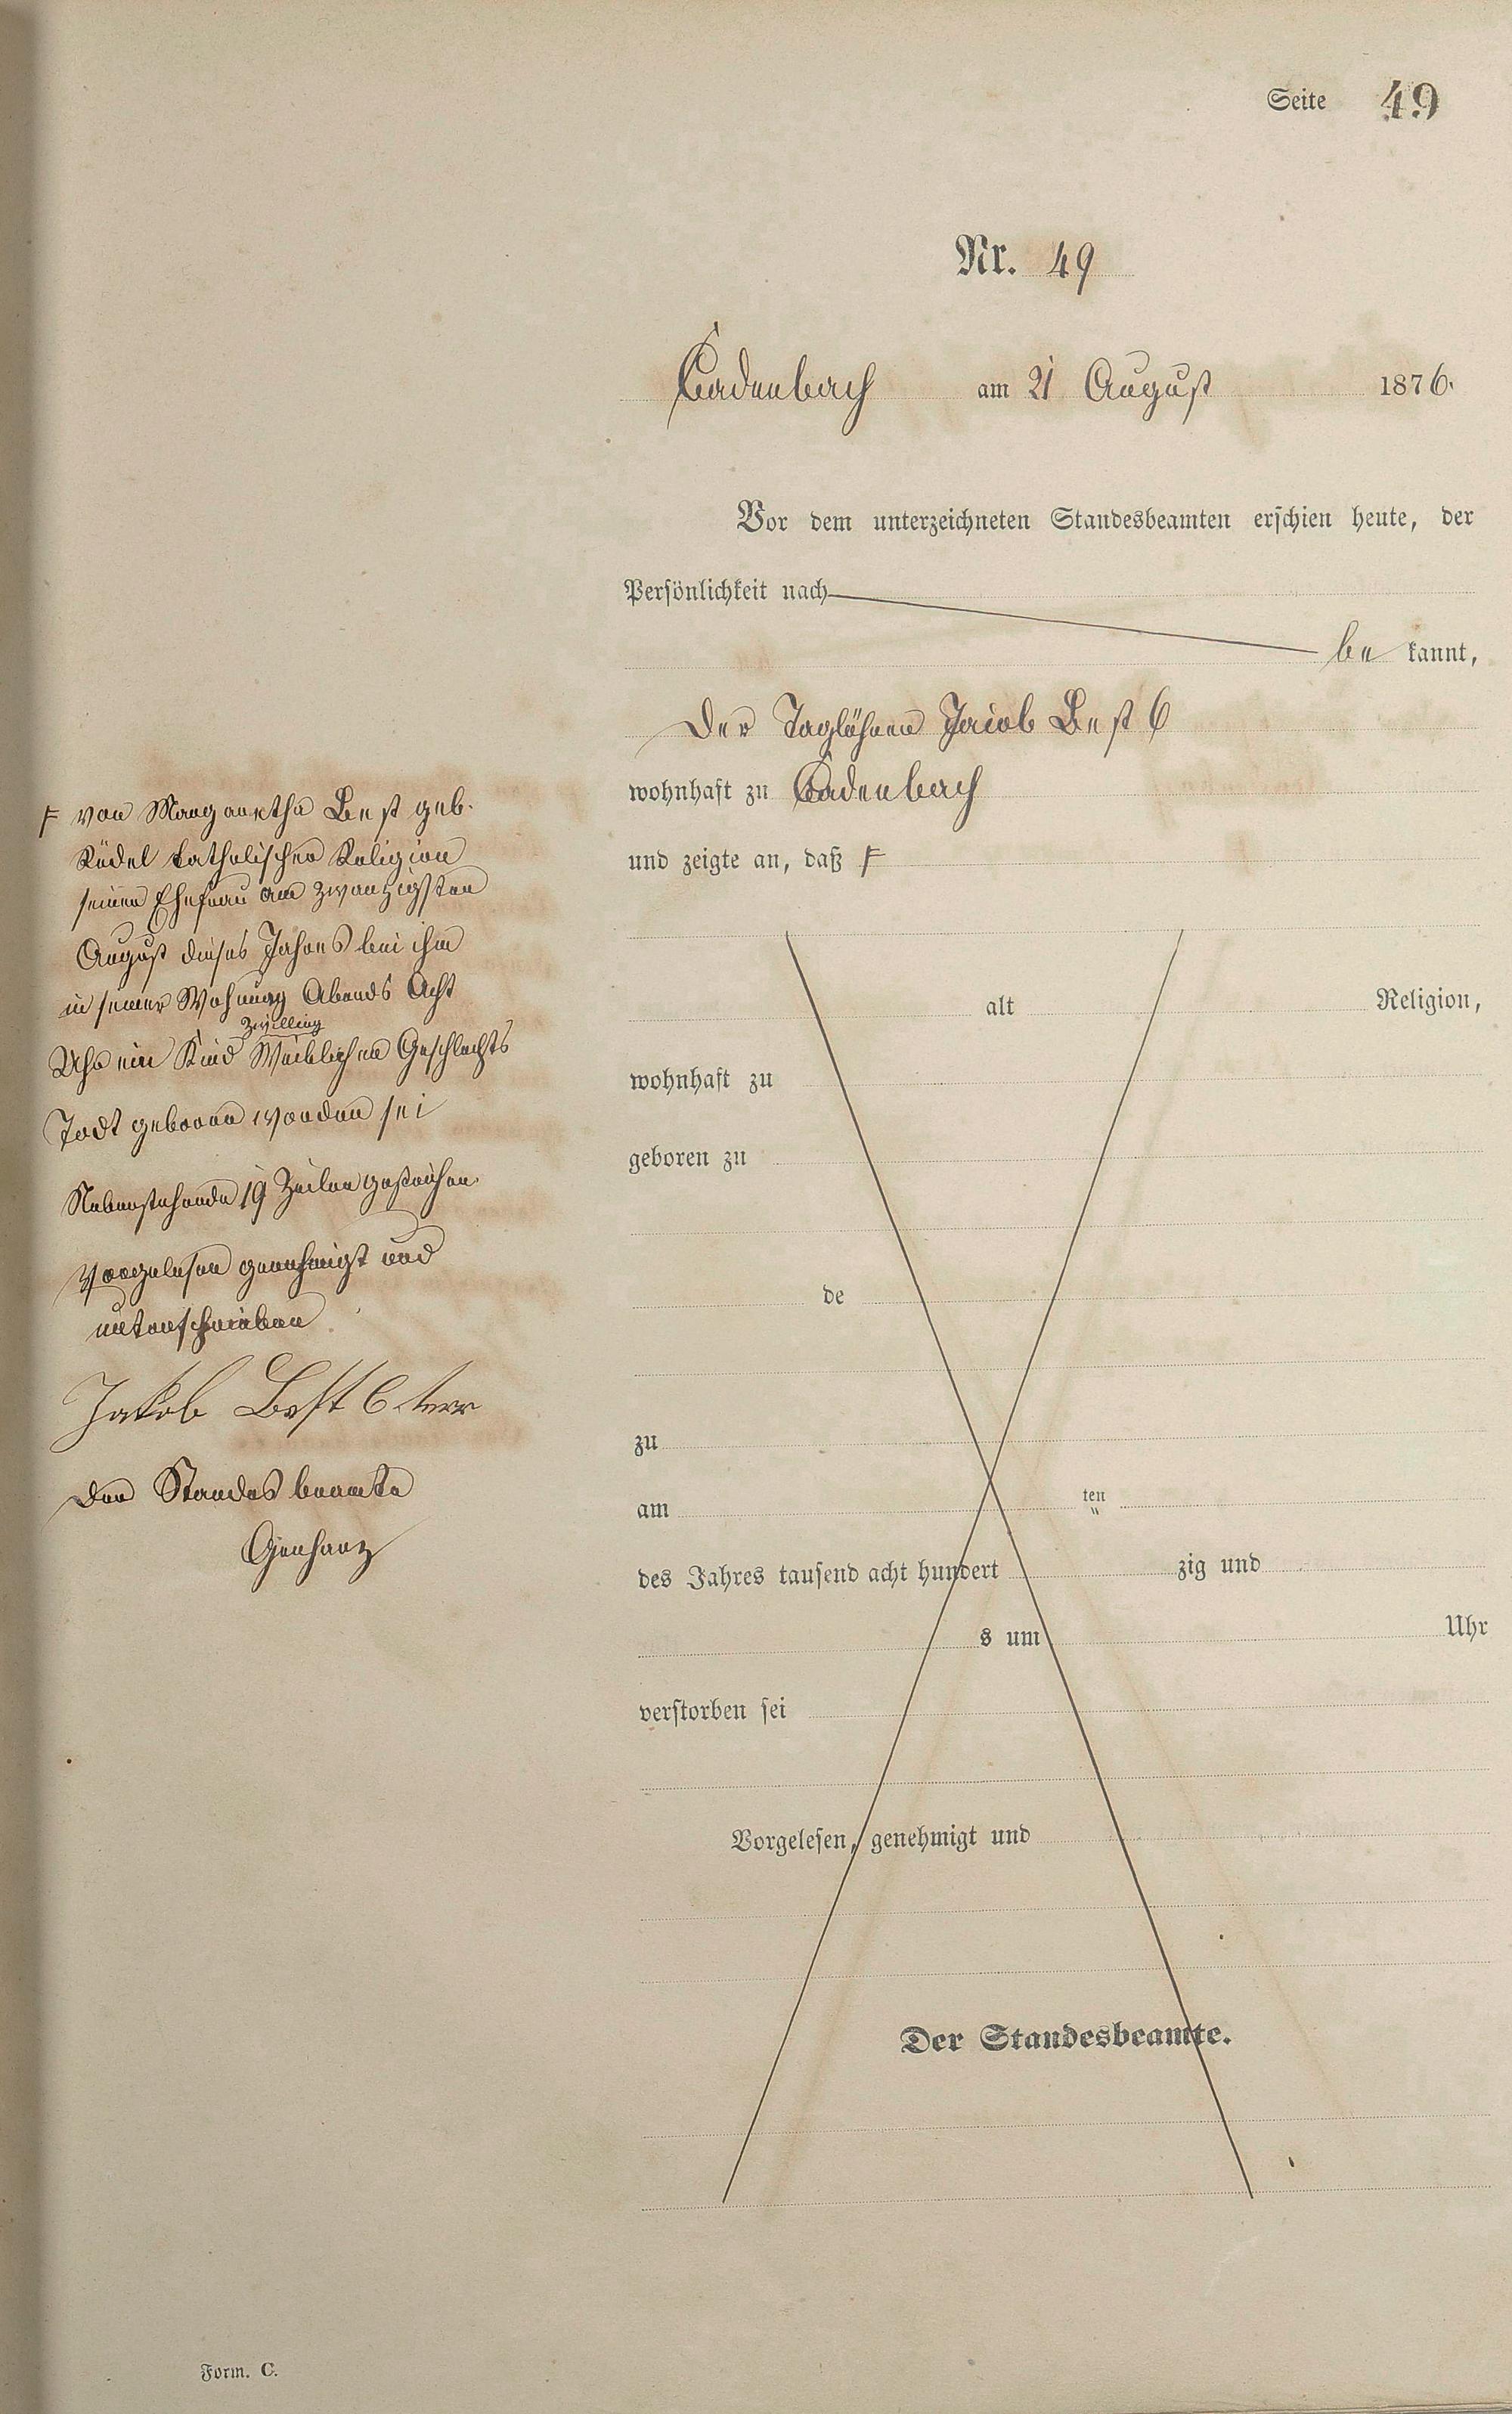 Seite 49
Nr. 49
Cadenbach am 21 August 1876.
Vor dem unterzeichneten Standesbeamten erschien heute, der
Persönlichkeit nach
be kannt,
Der Taglöhner Jacob Best 6
wohnhaft zu Cadenbach
und zeigte an, daß F
alt Religion,
wohnhaft zu
geboren zu
de
zu
am ten
des Jahres tausend acht hundert zig und
s um Uhr
verstorben sei
Vorgelesen, genehmigt und
Der Standesbeamte.
F von Margaretha Best geb.
Rüdel katholischer Religion
seiner Ehefrau am zwanzigsten
August dieses Jahres bei ihm
in seiner Wohnung Abends Acht
Zwilling
Uhr ein Kind Weiblichen Geschlechts
Todt geboren worden sei
Nebenstehende 19 Zeilen gestrichen.
Vorgelesen genehmigt und
unterschrieben
Jakob Best 6 ter
Der Standesbeamte
Gerharz
Form. C.